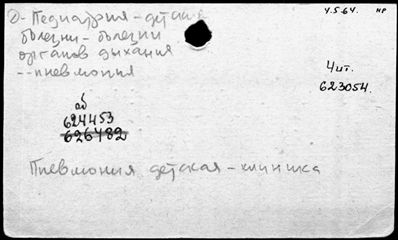 Э- Педиатрия - детские
болезни - болезни
органов дыхания
-- пневмония
4.5.64. НР
4 ит.
623054.
аб
624453
626782
Пневмония детская - клиника